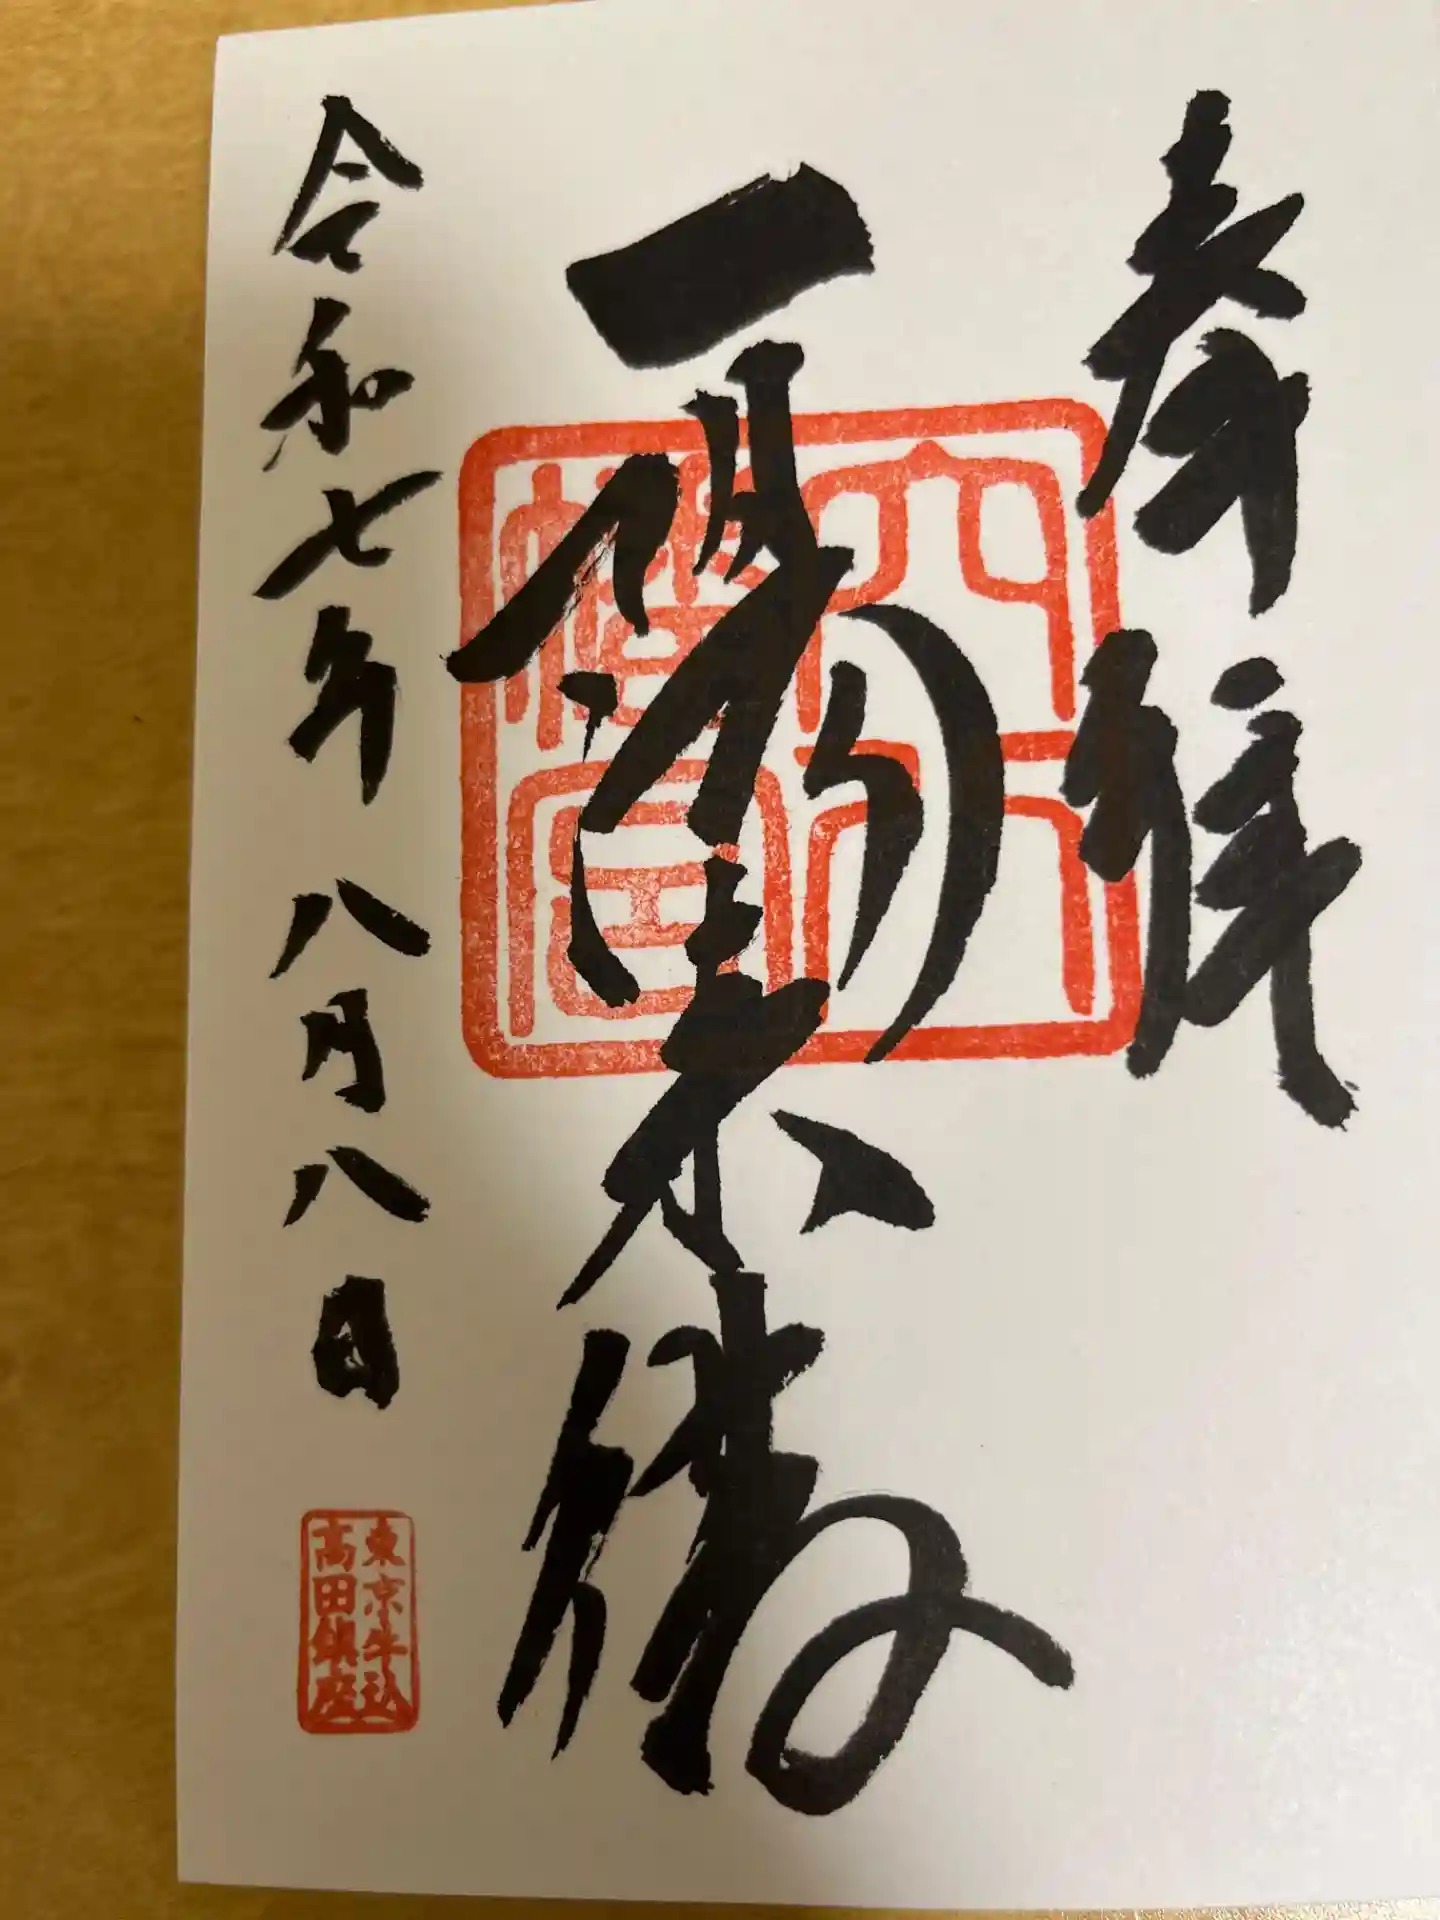 奉拝
一陽来復
穴八
幡宮
令和七年八月八日
東京牛込
高田鎮座